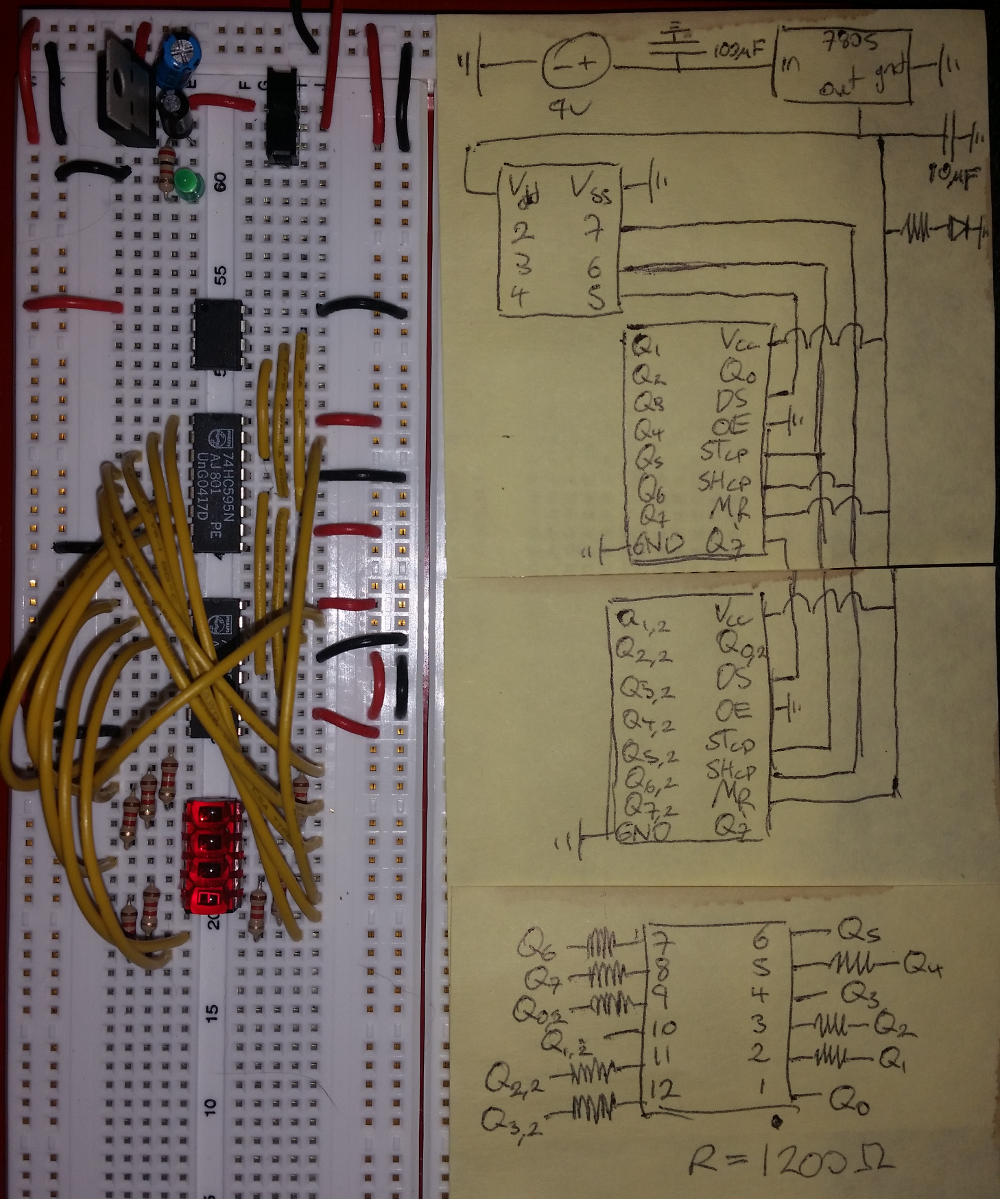 F G I J
E
60
55
5
74HC595N
AJ801 PE
UnG0417D
20
15
10
5
7805
in
gnd
out
100µF
- +
9V
10µF
Vdd Vss
2 7
3 6
4 5
Q1 Vcc
Q2 Q0
Q3 DS
Q4 OE
Q5 STCP
Q6 SHCP
Q7 MR
GND Q7
Q1,2 Vcc
Q2,2 Q0,2
Q3,2 DS
Q4,2 OE
Q5,2 STCP
Q6,2 SHCP
Q7,2 MR
GND Q7
Q6 7 6 Q5
Q7 8 5 Q4
Q0,2 9 4 Q3
Q1,2 10 3 Q2
Q2,2 11 2 Q1
Q3,2 12 1 Q0
R = 1200Ω